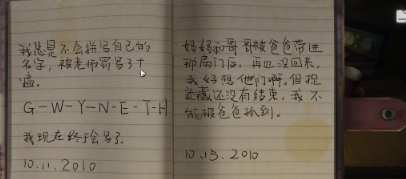 我总是不会拼写自己的
名字，被老师罚写了十
遍。
G-W-Y-N-E-T-H
我现在终于会写了。
10.11.2010
妈妈和哥哥被爸爸带进
那扇门后，再也没回来。
我好想他们啊。但捉
迷藏还没有结束，我不
能被爸爸抓到。
10.15.2010